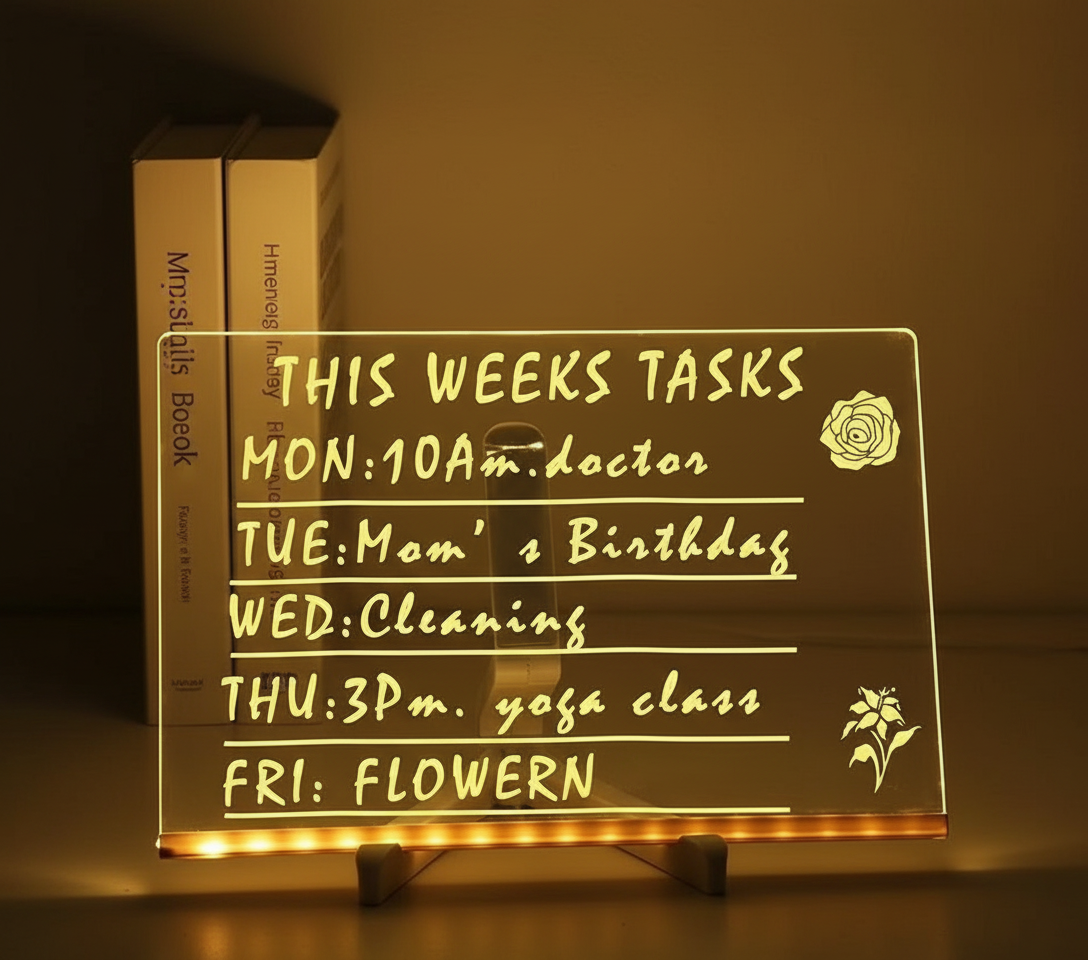 Mrp:stails Boeok
THIS WEEKS TASKS
MON:10Am.doctor
TUE:Mom's Birthdag
WED:Cleaning
THU:3Pm. yoga class
FRI: FLOWERN